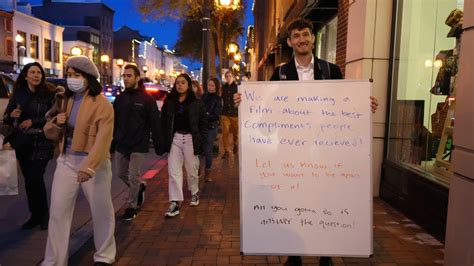 We are making a
film about the best
Compliments people
have ever recieved!
Let us know if
you want to be apart
of it!
All you gotta do is
answer the question!